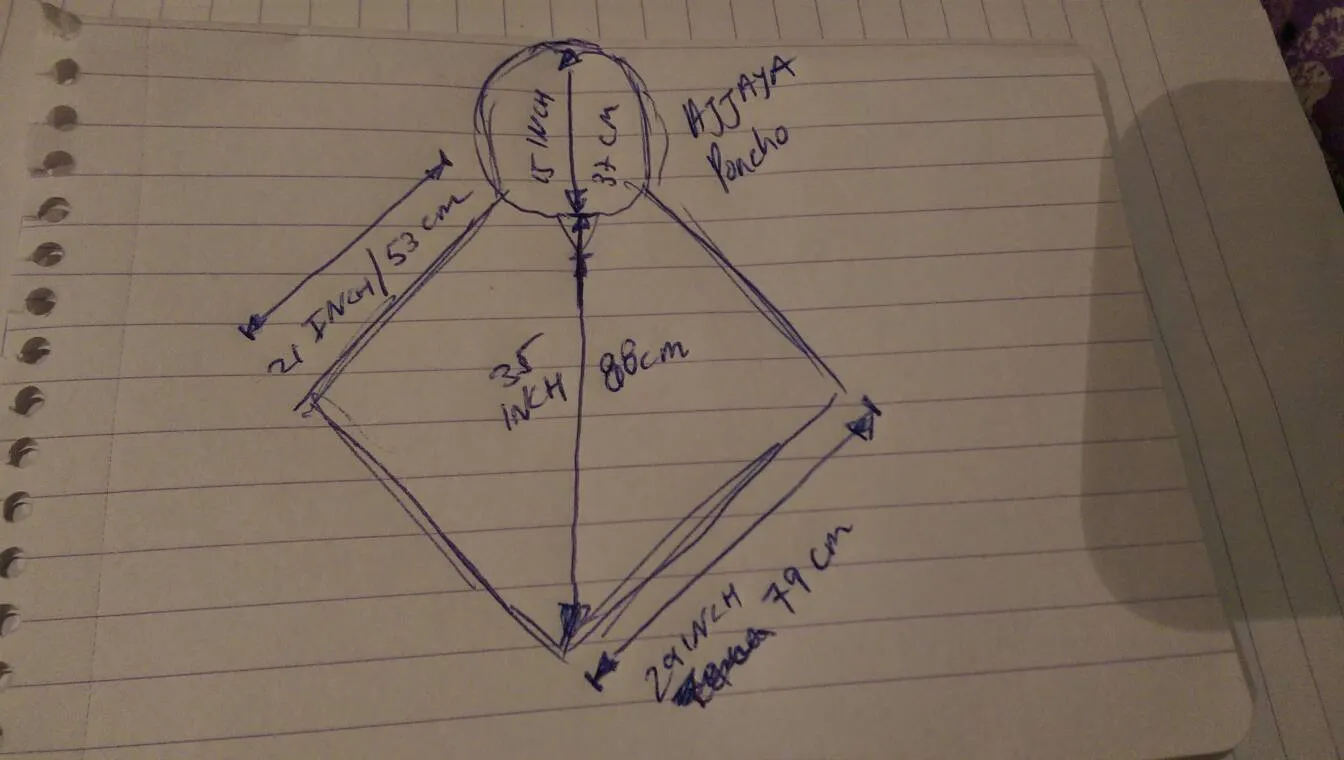 15 INCH
37 cm
AJJAYA
Poncho
21 INCH/53 cm
35
INCH
88cm
29 INCH
79 cm